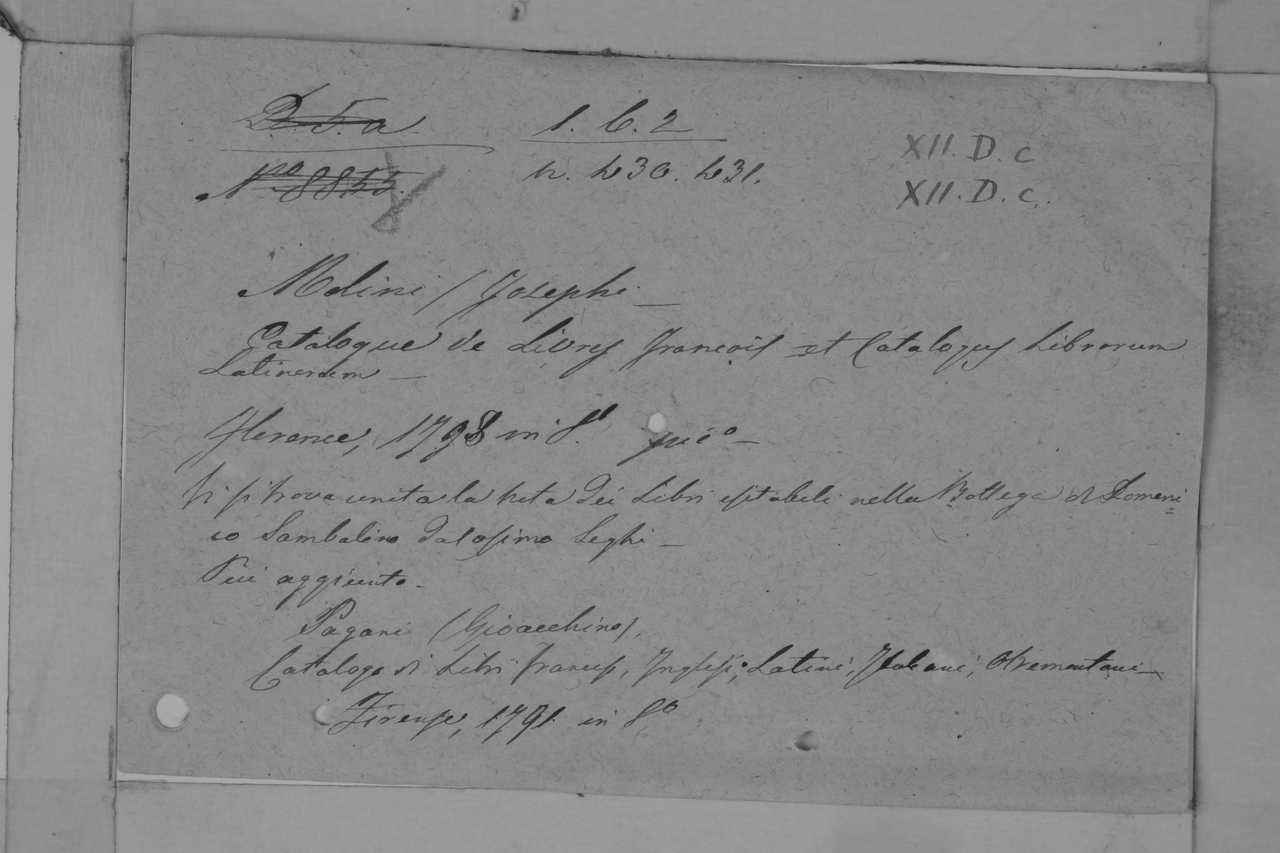 D. 5. a 1. 6. 2 XII. D. c
N.º 8855. n. 430. 431. XII. D. c.
Molini (Joseph)
Catalogue de Livres françois et Catalogus Librorum
Latinorum
Florence, 1798 in 8.º
Vi si trova unita la Nota dei Libri esitabili nella Bottega di Domeni=
co
Più aggiunto
Pagani (Gioacchino),
Catalogo di Libri francesi, Inglesi, Latini, Italiani, Oltremontani
Firenze, 1791. in 8.º